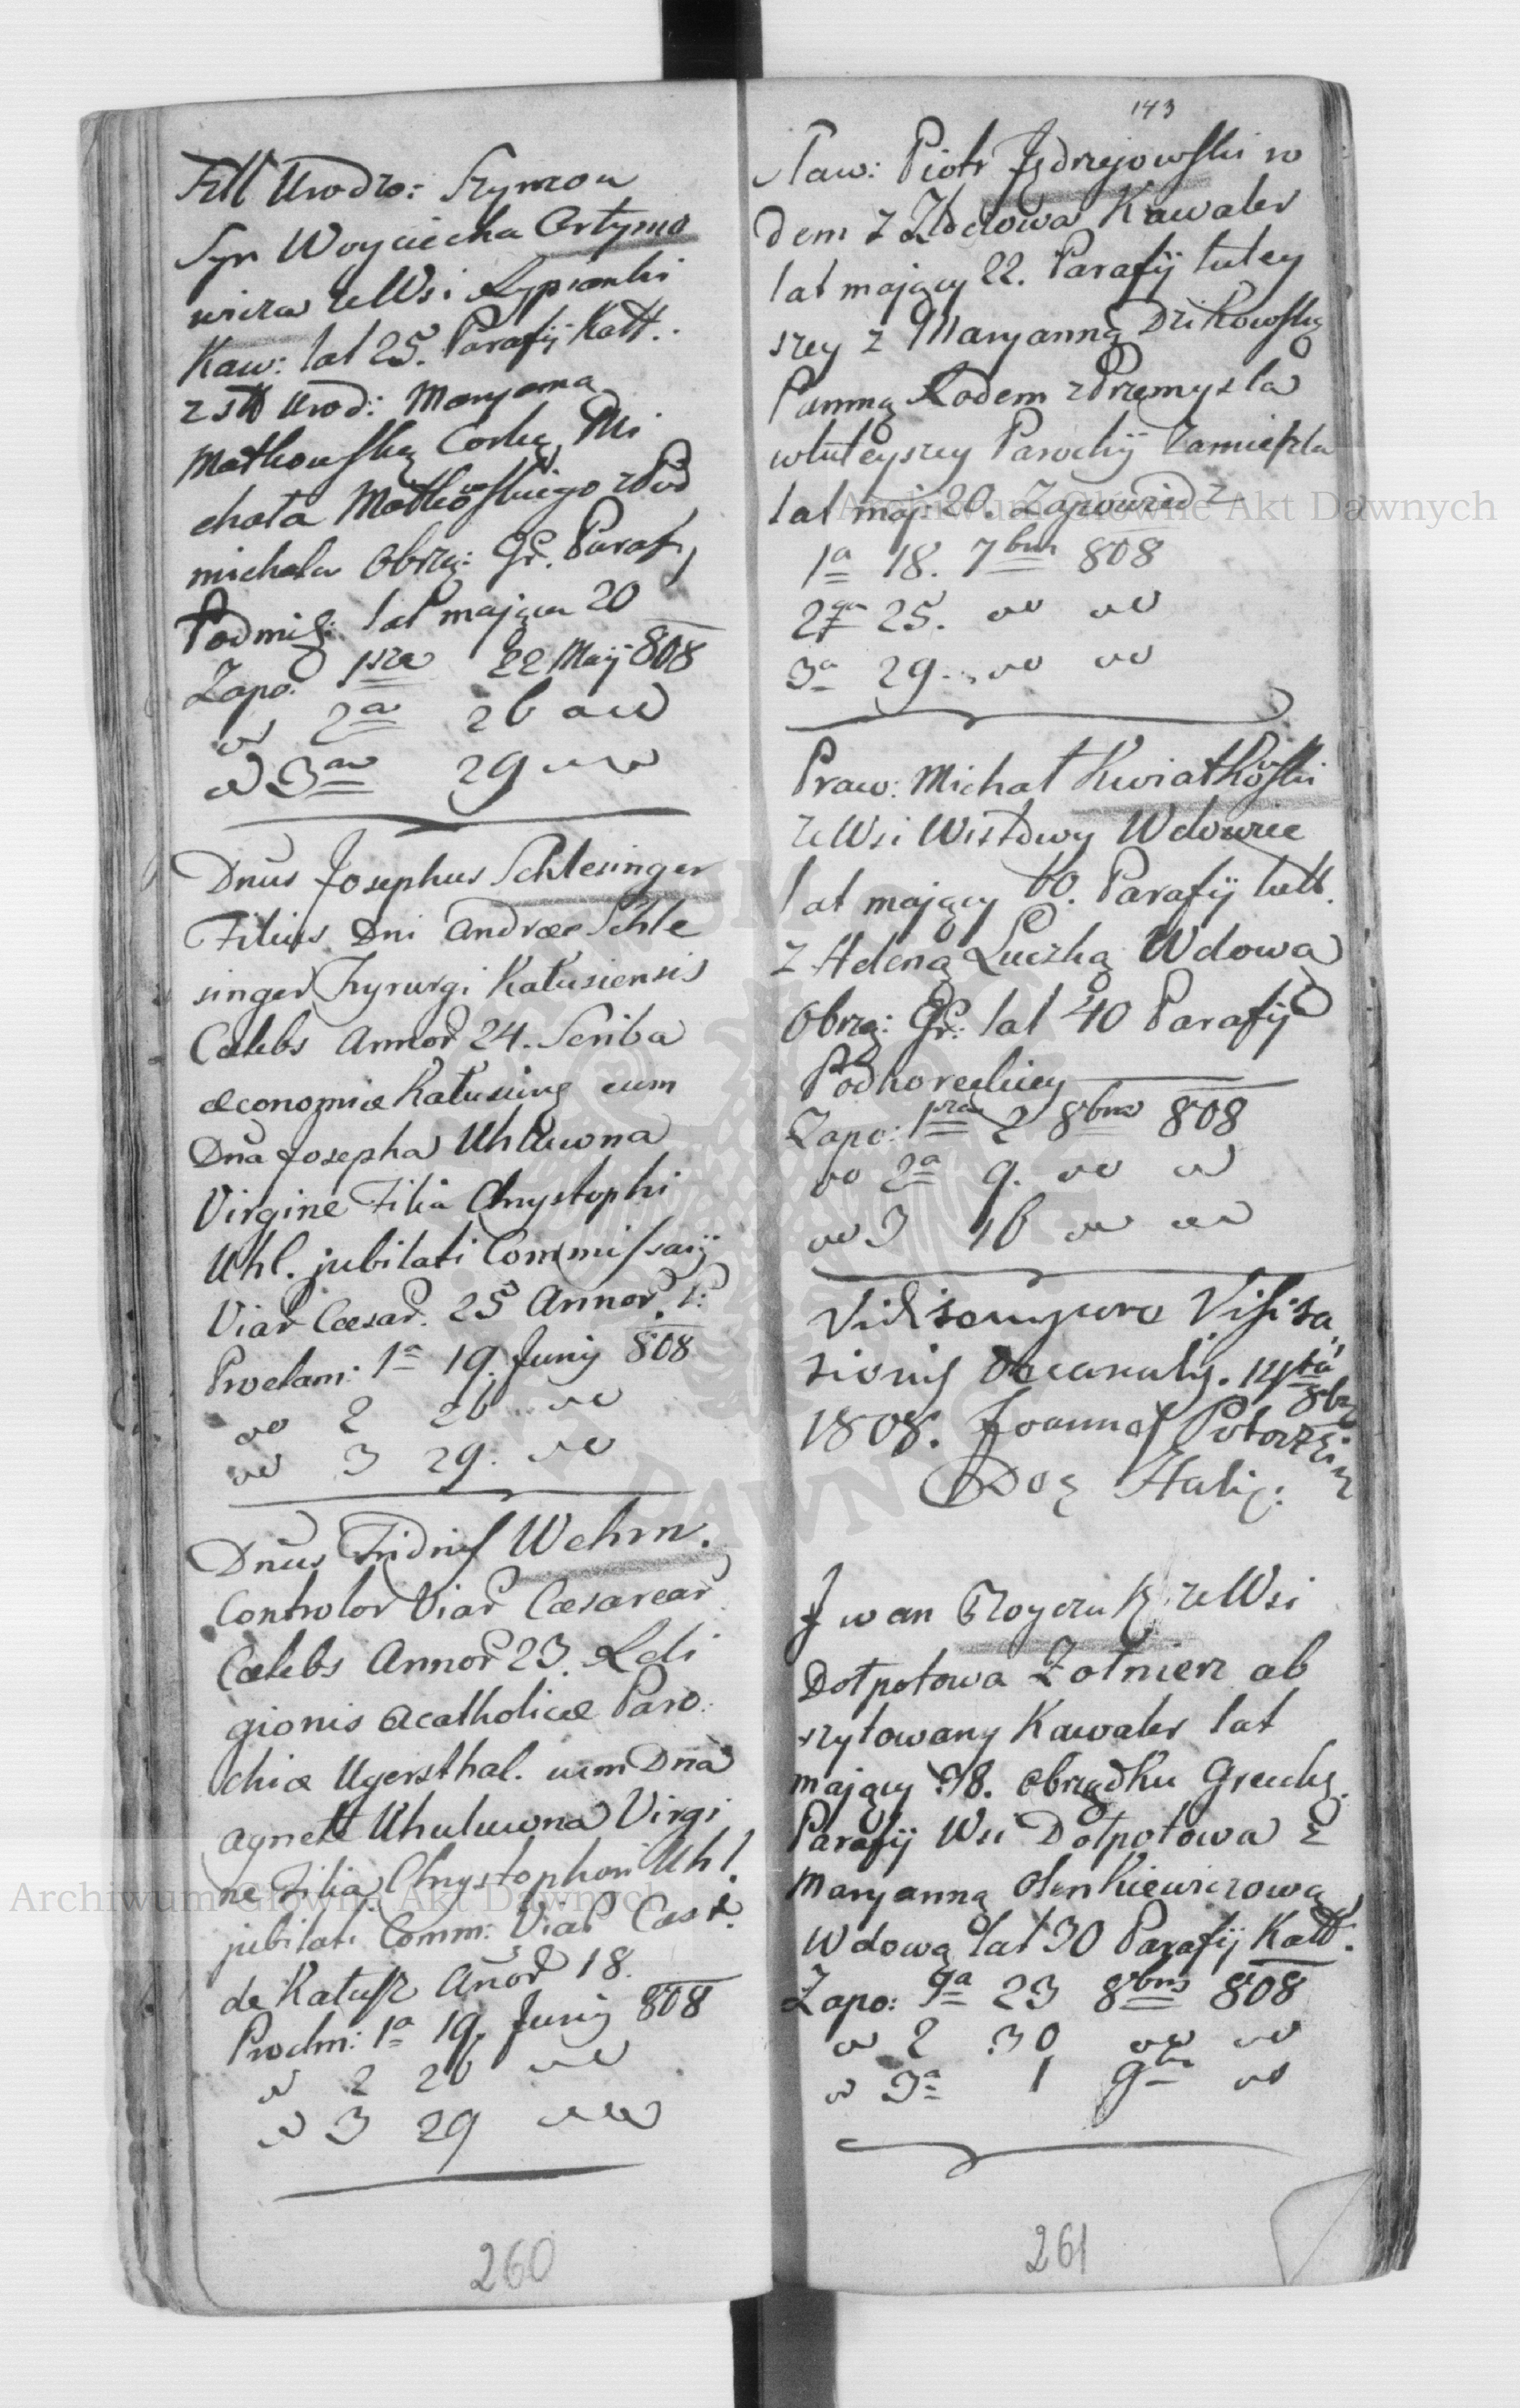 Urodzo: Szymon
Syn Woyciecha Artymo
wicza ze Wsi Kypianki
Kaw: lat 25. Parafij Katt.
z Urod: Maryanna
Matkowską Corką Mi
chała Matkowskiego z Pod
michala Obrzą: Gr. Paraf,
Podmi: lat mająca 20
Zapo: 1sza 22 Maij 808
2a 26
3a 29
Dnus Josephus Schlesinger
Filius Dni Andreæ Schle
singer Chyrurgi Kałusiensis
Cœlebs Annor 24. Scriba
œconomiæ Kałusing cum
Dna Josepha Uhluwna
Virgine Filia Chrystophi
Uhl. jubilati Commissarij
Viar Cæsar. 25 Annor.
Proclam: 1a 19. Junij 808
2 26
3 29.
Dnus Wehrn.
Controlor Viar Cæsarear
Cœlebs Annor 23. Reli
gionis Acatholicæ Paro:
chiæ Ugersthal. cum Dna
Agnete Uhuluwna Virgi
ne Filia Chrystophori Uhl.
jubilati Comm: Viar Cæs
de Kałusz Anor 18.
Proclm: 1a 19. Junij 808
2 26
3 29
260
143
Praw: Piotr Jędrzejowski ro
dem z Kawaler
lat mający 22. Parafij tutey
szey z Maryanną Dzikowską
Panną Rodem z Przemysla
w tuteyszey Parochij zamieszka
lat maj: 20. Zapowiedz
1a 18. 7bris 808
2ga 25.
3a 29.
Praw: Michał Kwiatkowski
ze Wsi Wistowy Wdowiec
lat mający 60. Parafij tutt.
z Heleną Luczką Wdową
Obrzą: Gr: lat 40 Parafij
Podhoreckiey
Zapo: 1sza 2 8bris 808
2a 9.
3 16
Vidi tempore Visita
tionis Decanalis. 12
8bris
1808. Joannes
Halic:
Iwan ze Wsi
Dołpotowa Żołnierz ab
szytowany Kawaler lat
mający 38. obrządku Grecki.
Parafij Wsi Dołpotowa z
Maryanną Olenkiewiczową
Wdową lat 30 Parafij Katt.
Zapo: 1a 23 8bris 808
2 30
3a 1 9bris
261
Archiwum Główne Akt Dawnych
Archiwum Główne Akt Dawnych